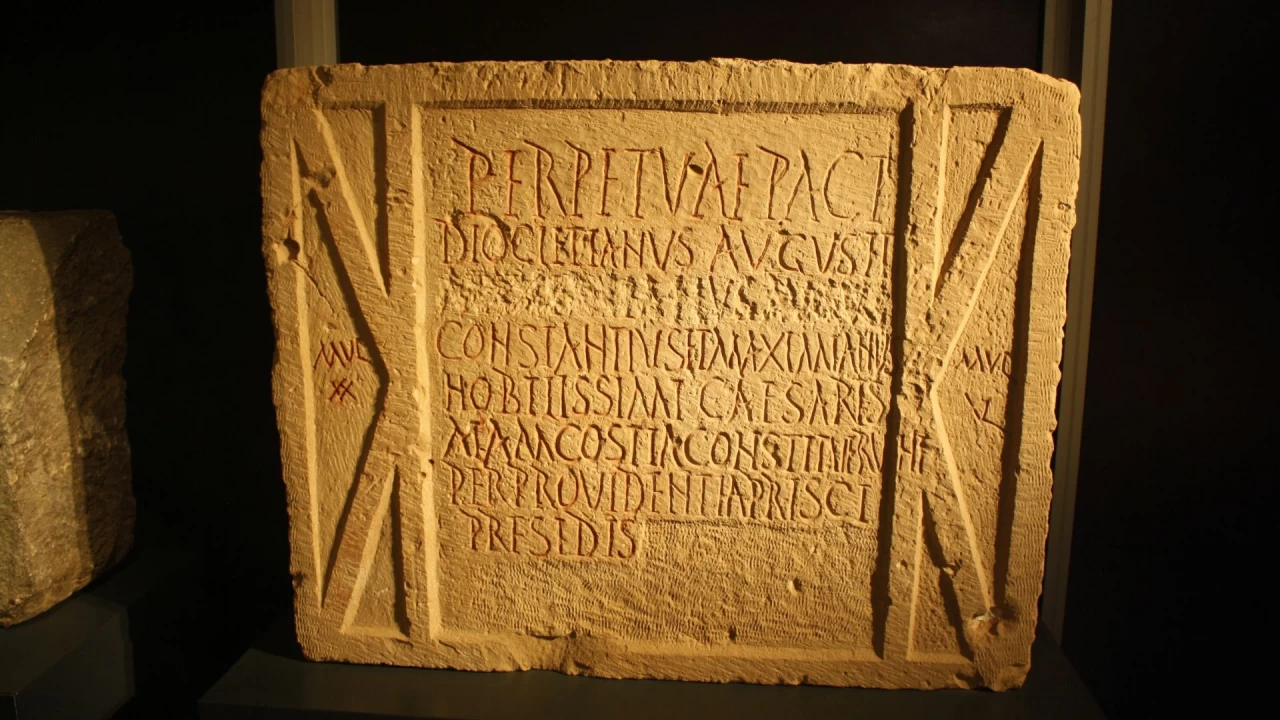 PERPETVAE PACI
DIOCLETIANVS AVGVSTI
CONSTANTIVS ET MAXIMIANVS
NOBILISSIMI CAESARIS
CONSTITVERVNT
PER PROVIDENTIA PRISCI
PRESIDIS
XX